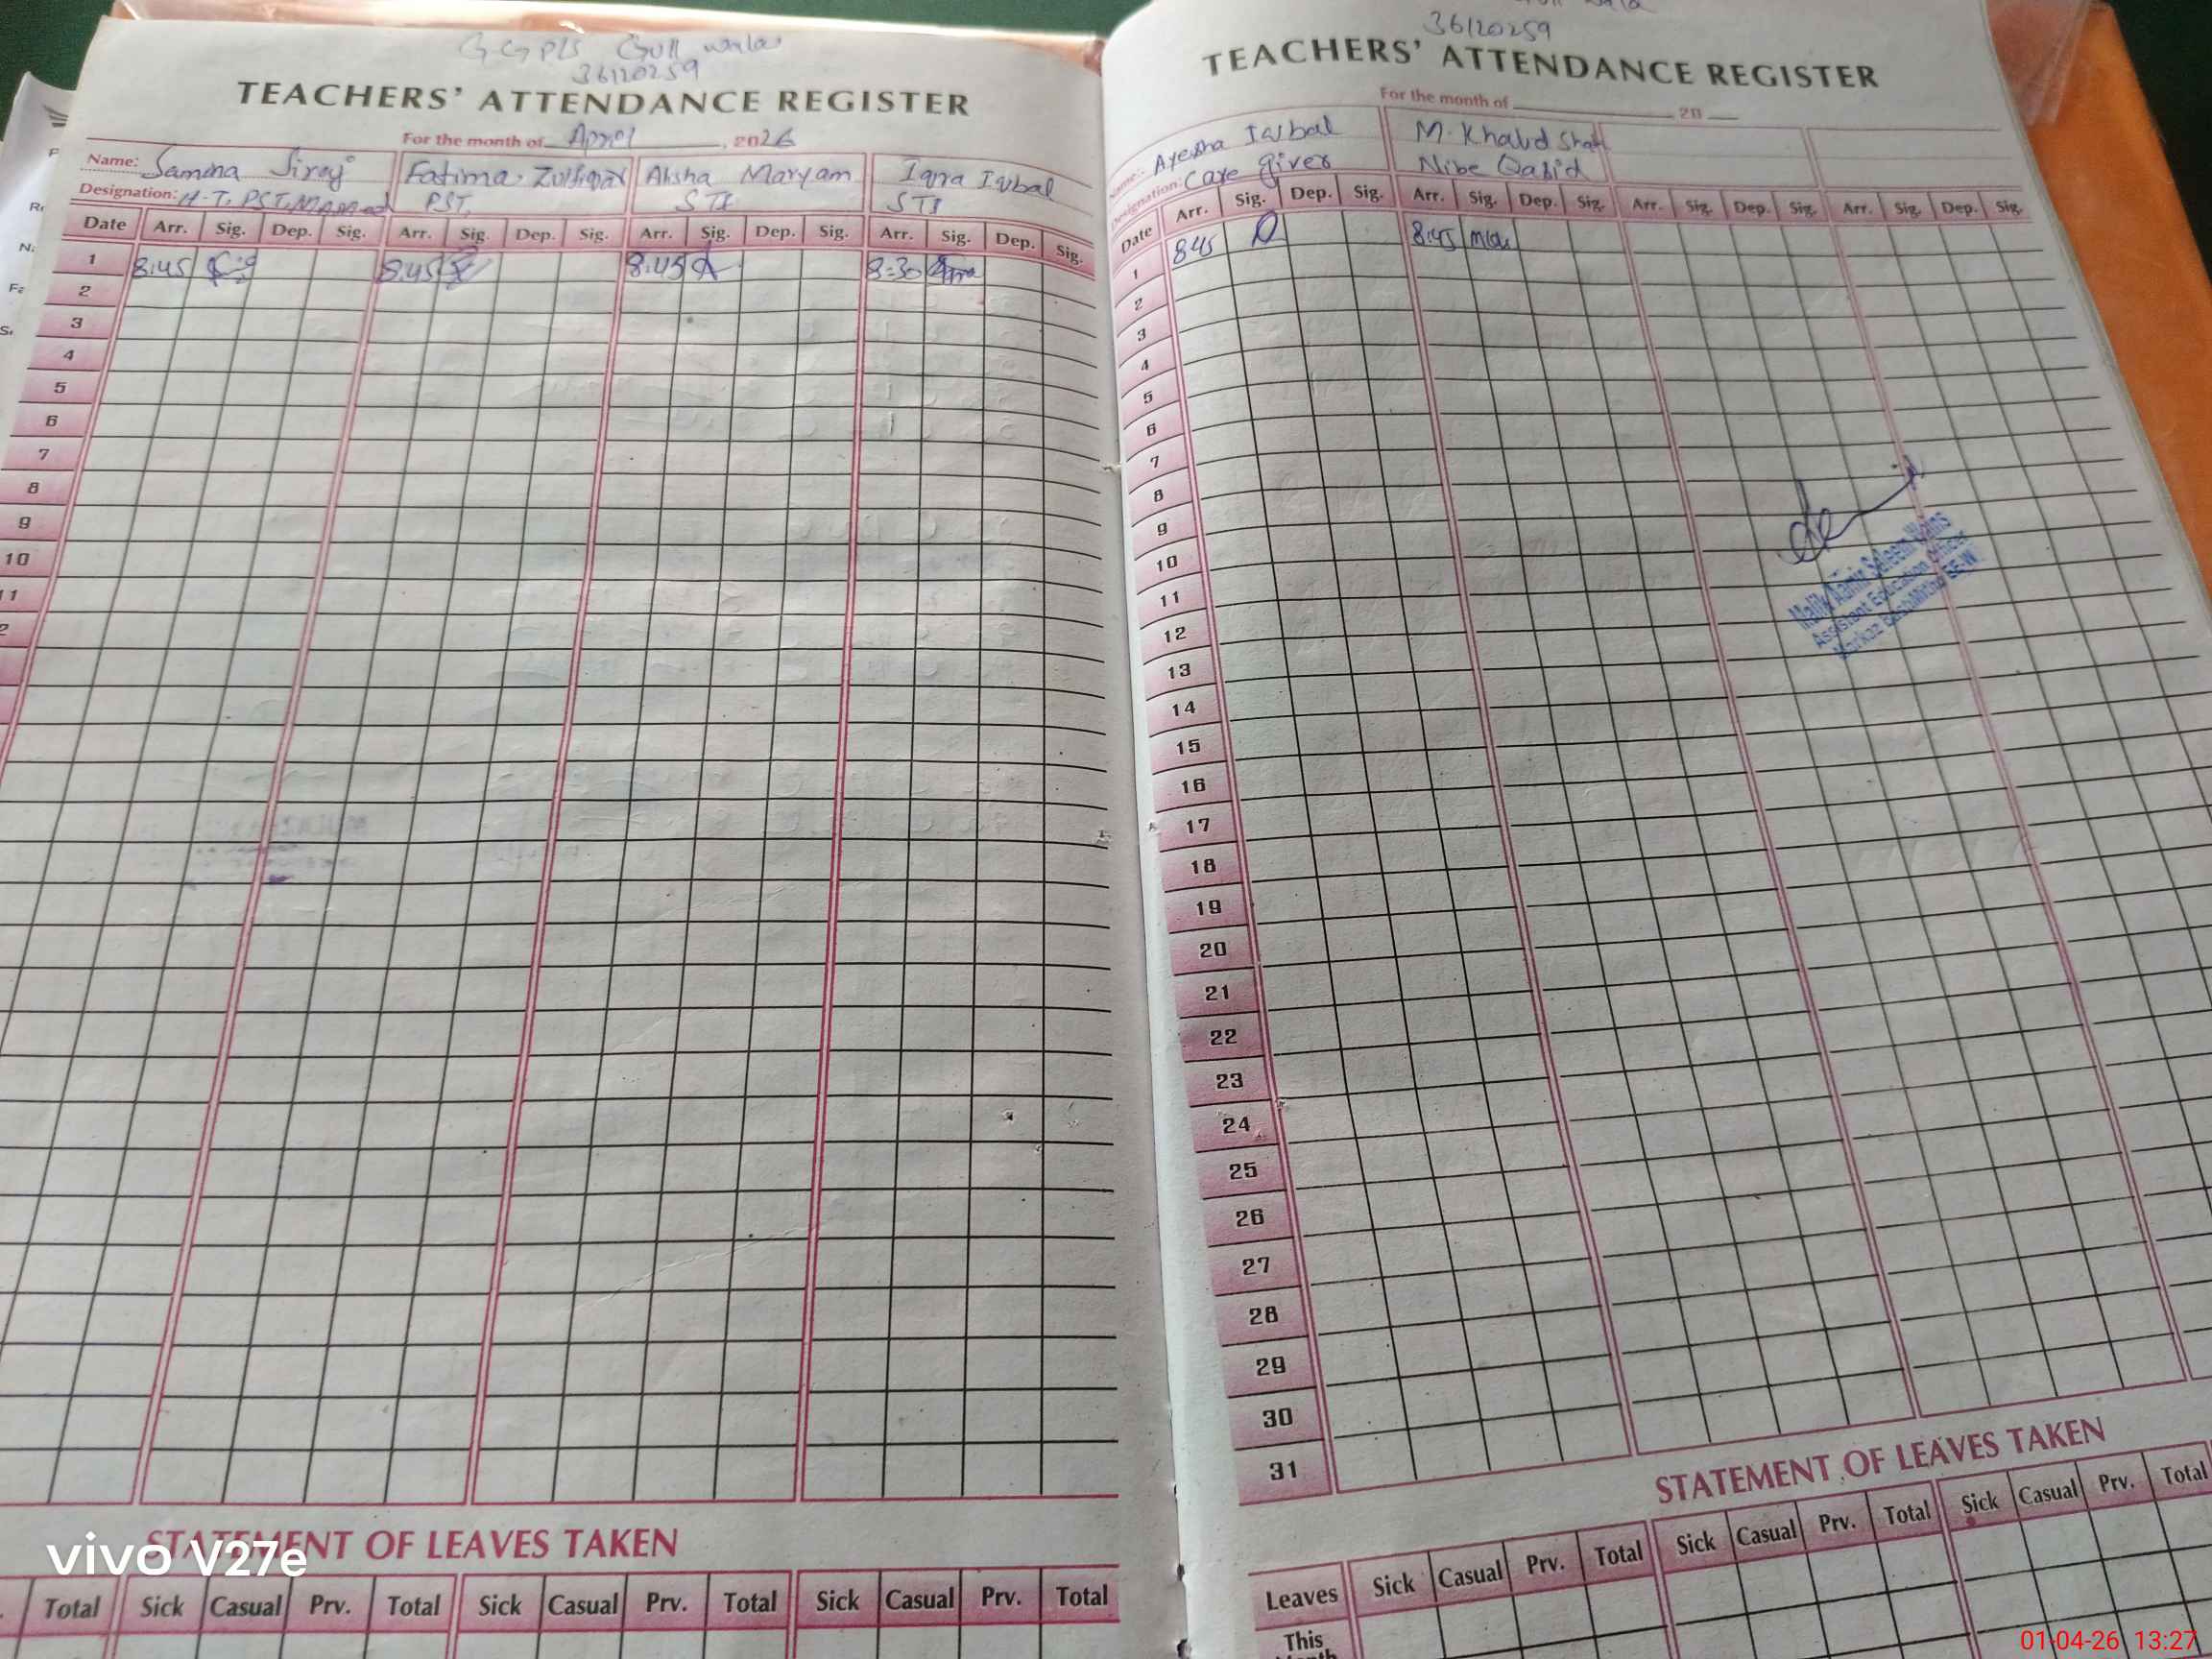 GGPS Gull wala
36120259
TEACHERS' ATTENDANCE REGISTER
For the month of April, 2026
Name: Samina Siraj Fatima Zulfiqar Aksha Maryam Iqra Iqbal
Designation: H-T, PST, PST STI STI
Date Arr. Sig. Dep. Sig. Arr. Sig. Dep. Sig. Arr. Sig. Dep. Sig. Arr. Sig. Dep. Sig.
1 8:45 8:45 8:45 8:30 Iqra
2
3
4
5
6
7
8
9
10
11
2
STATEMENT OF LEAVES TAKEN
Total Sick Casual Prv. Total Sick Casual Prv. Total Sick Casual Prv. Total
vivo V27e
36120259
TEACHERS' ATTENDANCE REGISTER
For the month of 20
Name: Ayesha Iqbal M. Khalid Shah
Designation: Care giver
Date Arr. Sig. Dep. Sig. Arr. Sig. Dep. Sig. Arr. Sig. Dep. Sig. Arr. Sig. Dep. Sig.
1 845 8:45
2
3
4
5
6
7
8
9
10
11
12
13
14
15
16
17
18
19
20
21
22
23
24
25
26
27
28
29
30
31
Malik Aamir Saleem
Assistant Education Officer
Markaz EE-W
STATEMENT OF LEAVES TAKEN
Leaves Sick Casual Prv. Total Sick Casual Prv. Total Sick Casual Prv. Total
This
Month
01-04-26 13:27